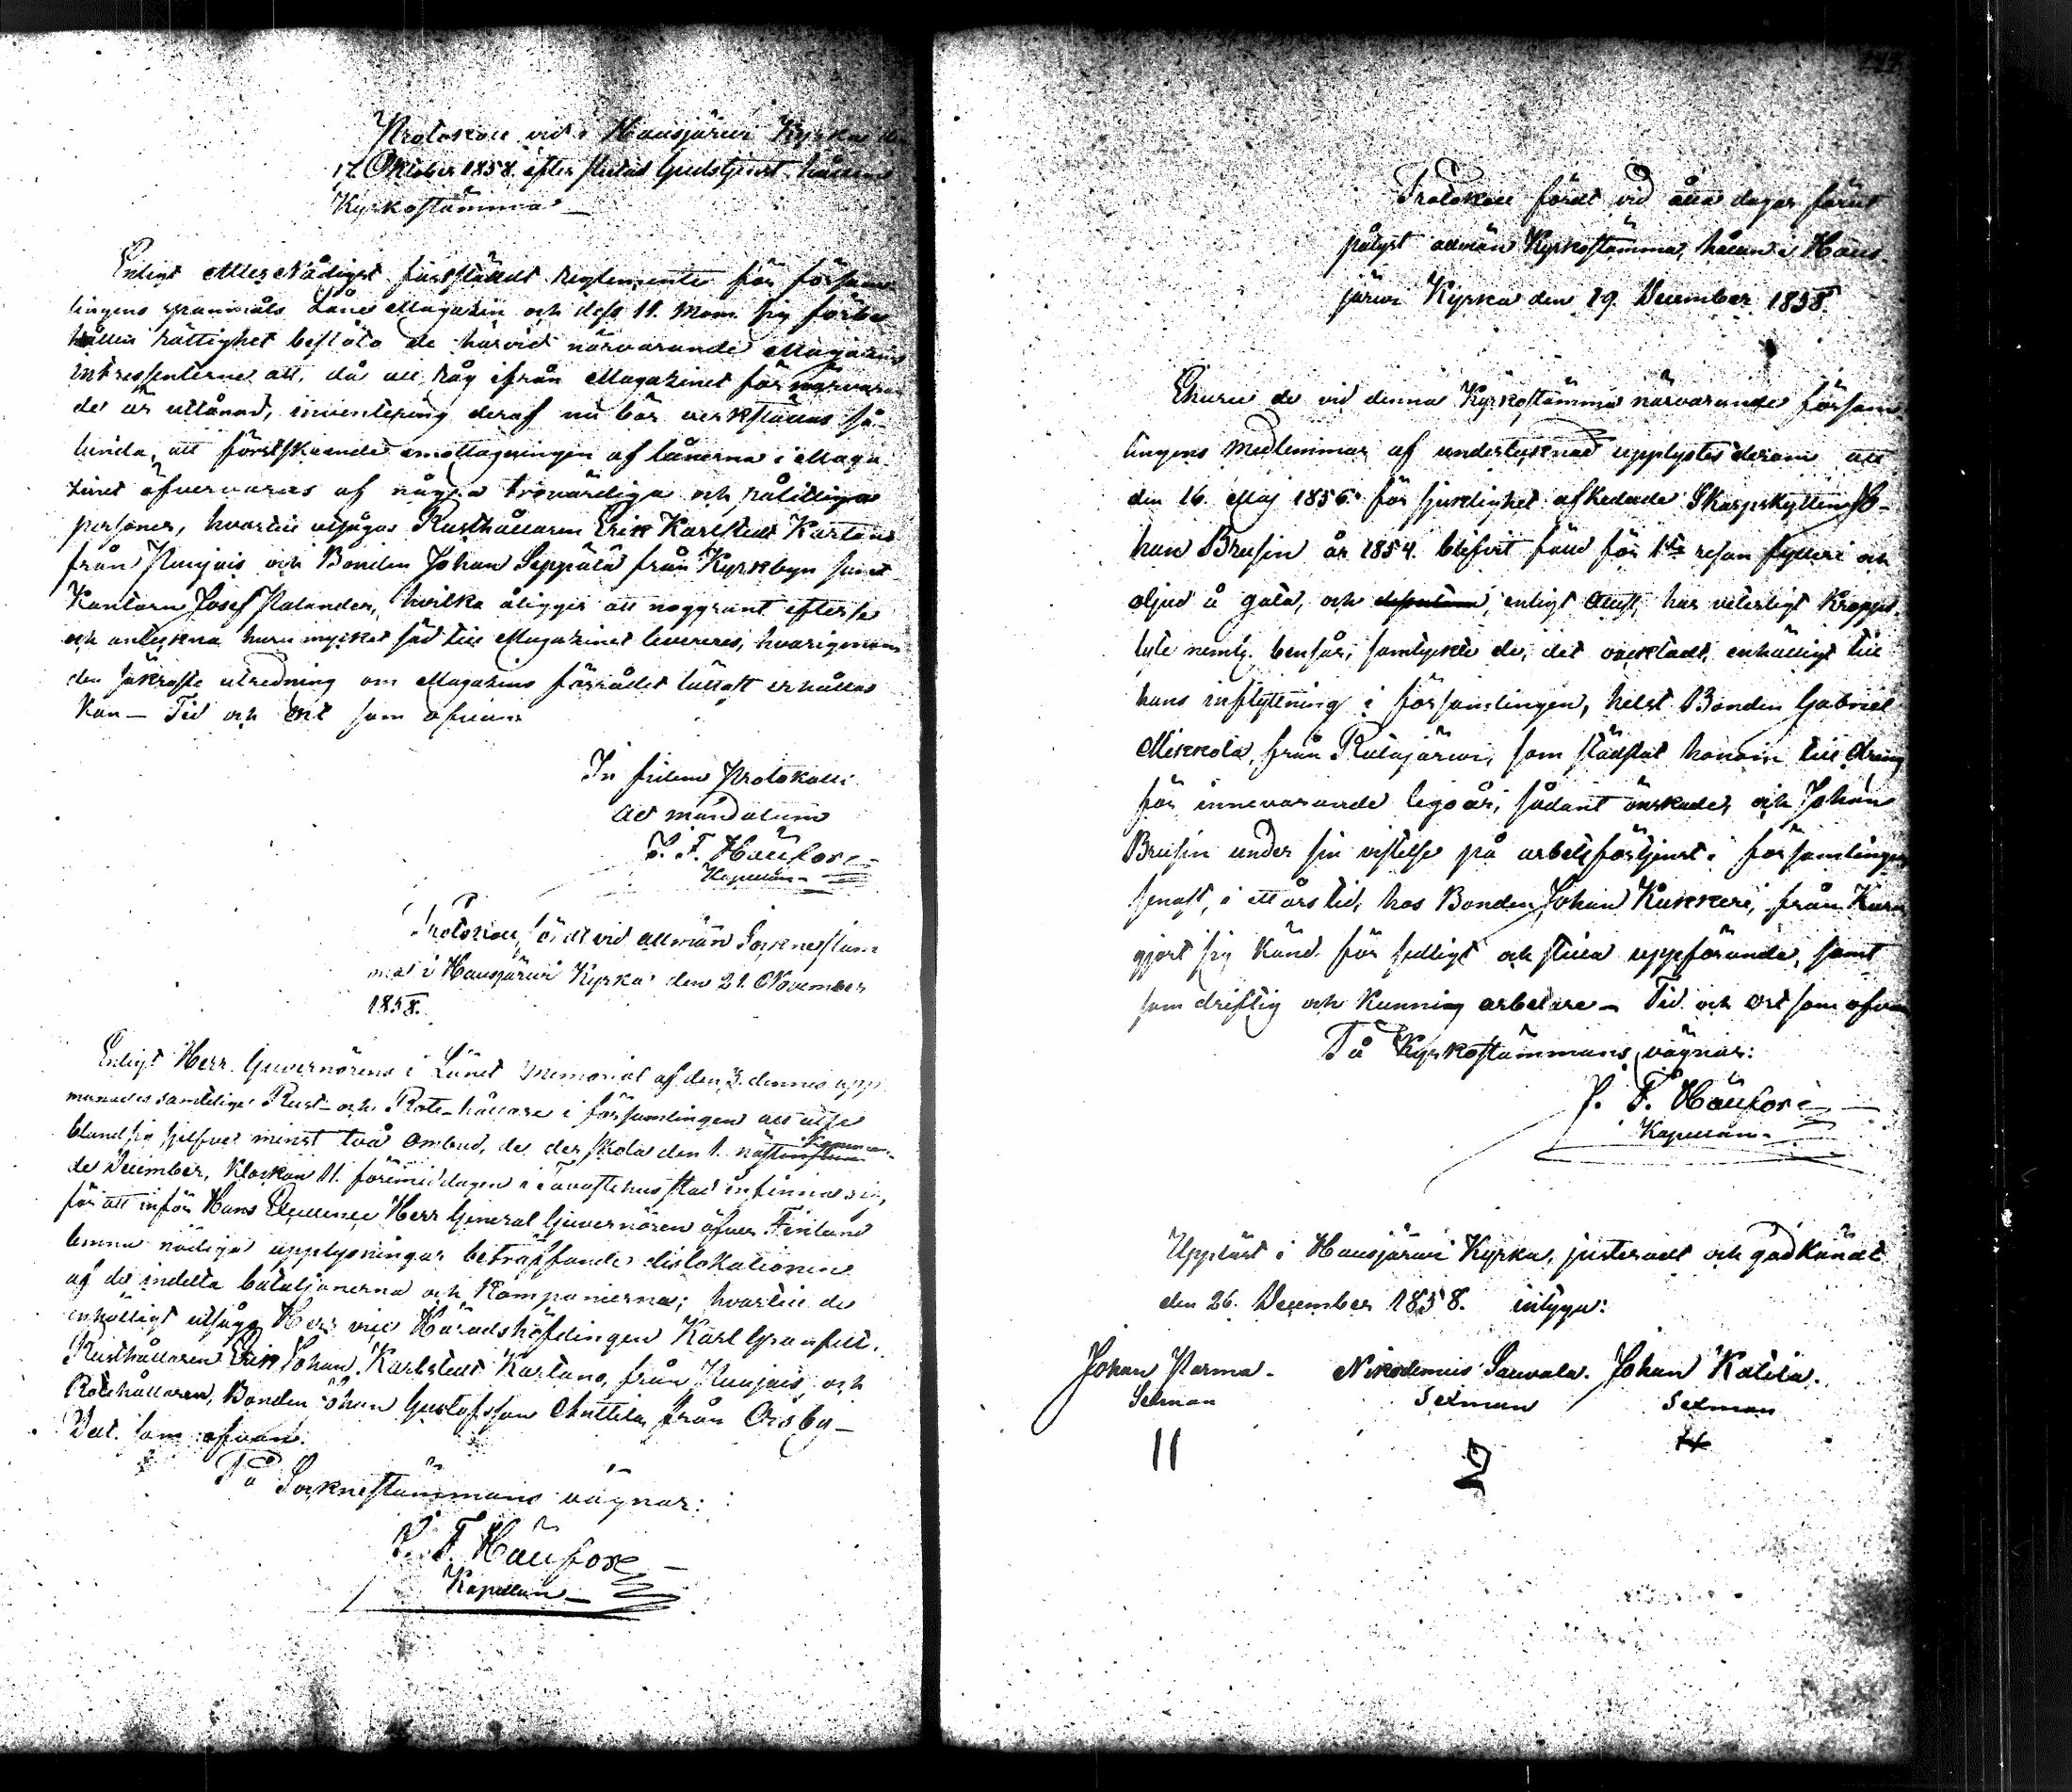 Protokoll vid i Hausjärwi Kyrka den
17 Oktober 1858 efter slutad Gudstjenst hållen
Kyrkostämma
Enligt Aller Nådigst fastställdt reglemente för försam
lingens spannmåls Låne Magazin och dess 11. mom. sig förbe
hållen rättighet besluto de härvid närvarande Magazins
intressenterne att, då all råg ifrån Magazinet för närvaran
de är utlånad, inventering deraf nu bör verkställas så-
lunda, att förstskeende emottagningen af lånerna i Maga
zinet öfvervaras af några trovärdiga och pålitliga
personer, hvartill utsågos Rusthållaren Erik Karlstedt Kartano
från Punjais och Bonden Johan Seppälä från Kyrkbyn samt
Kantorn Josef Palander, hvilka åligger att noggrant efterse
och anteckna huru mycket säd till Magazinet levereres, hvarigenom
den säkraste utredning om Magazins förrådet lättast erhållas
kan — Tid och ort som ofvan
In fidem Protokolli
ad mandatum
P. F. Häufor
Kapellan
Protokoll, fördt vid allmän Sockenstäm
ma i Hausjärwi Kyrka den 21. November
1858.
Enligt Herr Guvernörens i Länet Memorial af den 3. dennes upp
manades samtelige Rust- och Rote-hållare i församlingen att utse
bland sig sjelfve minst två ombud, de der skola den 1. nästkomman-
de December, klockan 11. förmiddagen i Tavastehus stad infinna sig,
för att inför Hans Excellence Herr General Guvernören öfver Finland
lemna nödiga upplysningar beträffande dislokationen
af de indelta bataljonerna och Kompanierna; hvartill de
enhälligt utsågo Herr vice Häradshöfdingen Karl Granfelt,
Rusthållaren Erik Johan Karlstedt Kartano, från Punjais, och
Rotehållaren, Bonden Johan Gustafsson Anttila från Oisby—
Dat. som ofvan.
På Sockenstämmans vägnar:
P. F. Häufor
Kapellan
Protokoll fördt vid åtta dagar förut
pålyst allmän Kyrkostämma, hållen i Haus-
järwi Kyrka den 19. December 1858.
Ehuru de vid denna Kyrkostämma närvarande försam
lingens medlemmar af undertecknad upplystes derom att
den 16. Maj 1856 för sjuklighet afskedade Skarpskytten Jo-
han Brusin år 1854. blifvit fälld för 1sta resan fylleri och
oljud å gata, och enligt Attest, har veterligt kropps-
lyte neml. bensår, samtyckte de, det oaktadt, enhälligt till
hans inflyttning i församlingen, helst Bonden Gabriel
Mikkola, från Ridasjärwi, som städslat honom till dräng
för innevarande legoår, sådant önskade, och Johan
Brusin under sin vistelse på arbetsförtjenst i församlingen
senast, i ett års tid, hos Bonden Johan Kukkeri, från Kara
gjort sig känd för sedligt och stilla uppförande, samt
som driftig och kunnig arbetare — Tid och ort som ofvan
På Kyrkostämmans vägnar:
P. F. Häufor
Kapellan
Uppläst i Hausjärwi Kyrka, justeradt och godkändt
den 26. December 1858. intyga:
Johan Parma. Nikodemus Sauvala. Johan Katila.
Sexman Sexman Sexman